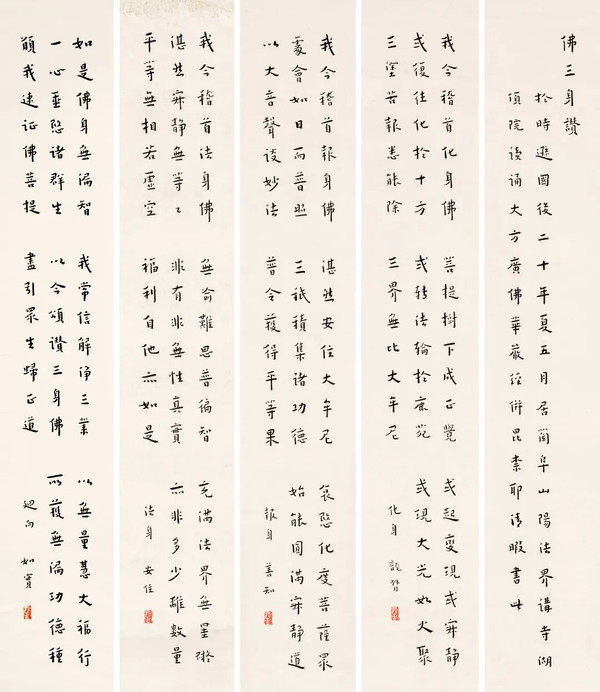 佛三身讚
於時遜國後二十年夏五月居蘭阜山陽法界講寺湖
頂院讀誦大方廣佛華嚴經併毘柰耶清暇書此
我今稽首化身佛 菩提樹下成正覺 或起變現或寂靜
或復往化於十方 或轉法輪於鹿苑 或現大光如火聚
三塗苦報悉能除 三界無比大牟尼 化身 龍臂
我今稽首報身佛 湛然安住大牟尼 哀愍化度菩薩眾
處會如日而普照 三祇積集諸功德 始能圓滿寂靜道
以大音聲談妙法 普令獲得平等果 報身 善知
我今稽首法身佛 無喻難思普徧智 充滿法界無罣礙
湛然寂靜無等々 非有非無性真實 亦非多少離數量
平等無相若虛空 福利自他亦如是 法身 安住
如是佛身無漏智 我常信解淨三業 以無量慧大福行
一心垂愍諸群生 以今頌讚三身佛 所獲無漏功德種
願我速证佛菩提 盡引眾生歸正道 迴向 如實